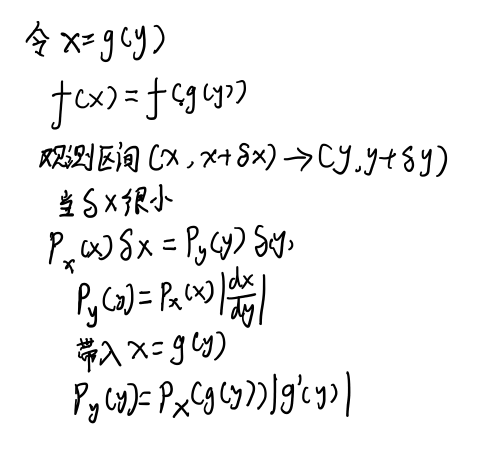 令 x=g(y)
f(x)=f(g(y))
观测区间(x,x+δx)→(y,y+δy)
当δx很小
Pₓ(x)δx=P_y(y)δy,
P_y(y)=Pₓ(x)|dx/dy|
带入x=g(y)
P_y(y)=Pₓ(g(y))|g'(y)|